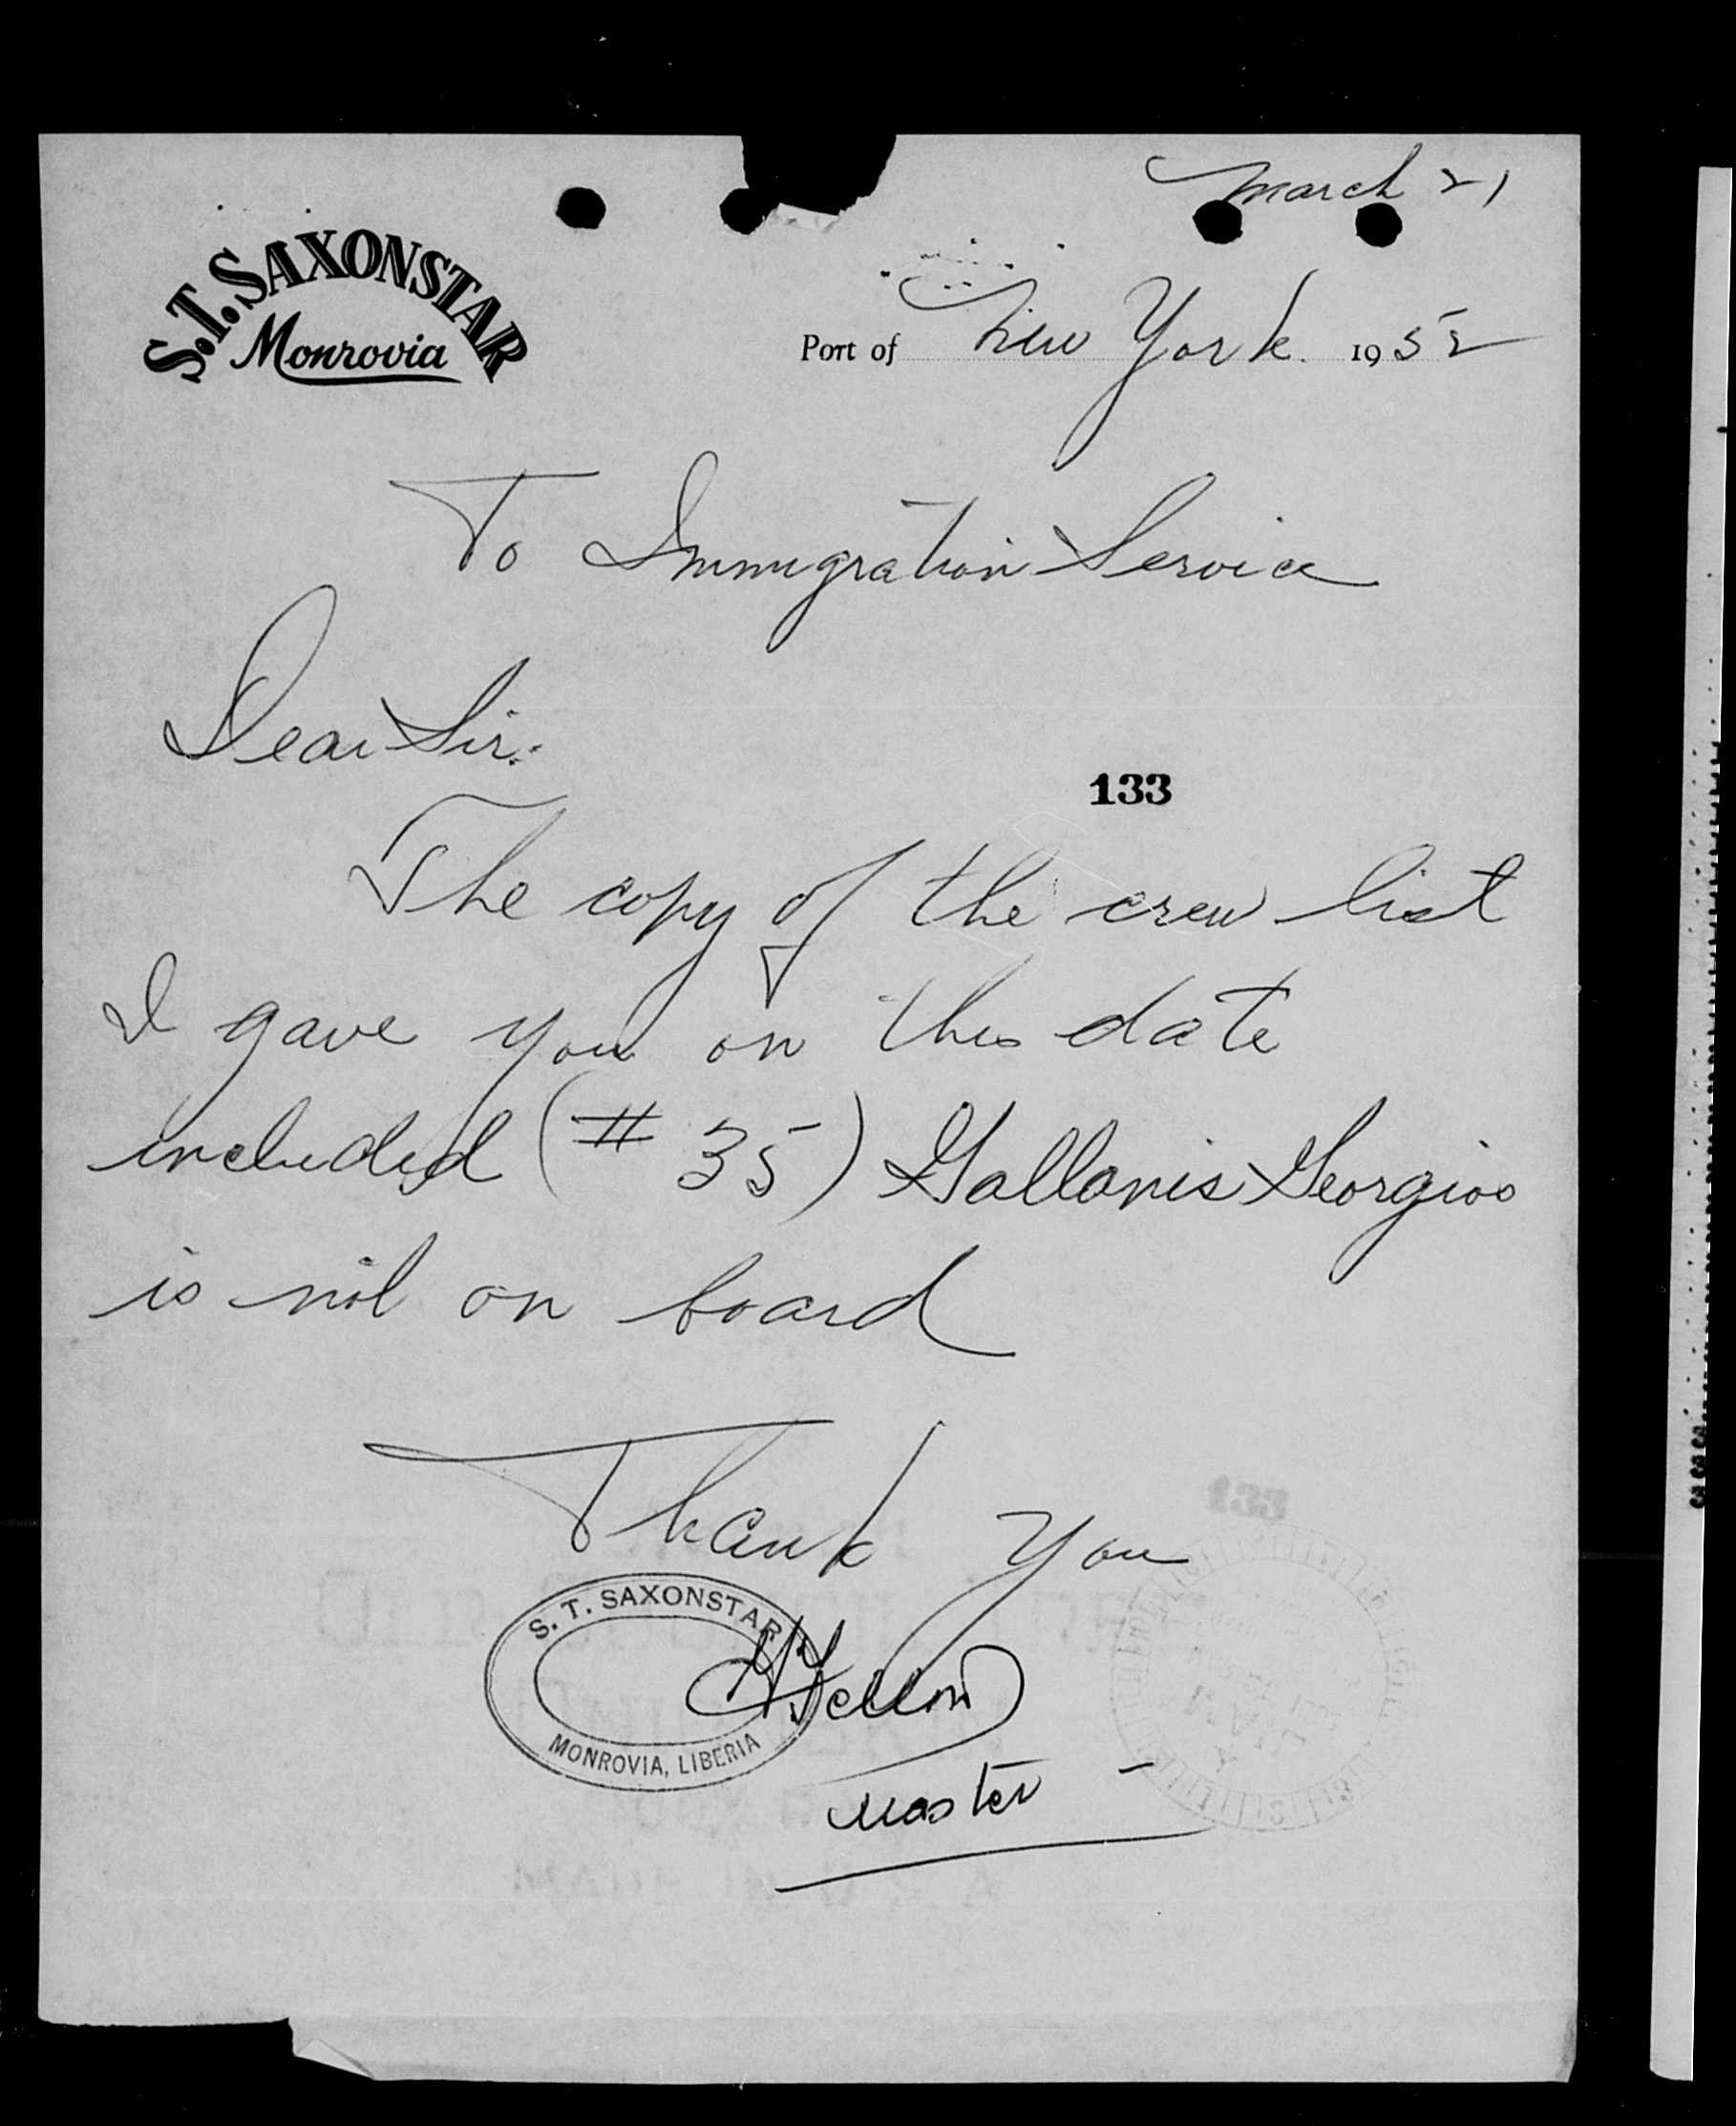 March 21
S.T. SAXONSTAR
Monrovia
Port of New York 1952
To Immigration Service
Dear Sir:
133
The copy of the crew list
I gave you on this date
included (# 35) Gallanis Georgios
is not on board
Thank You
S. T. SAXONSTAR
MONROVIA, LIBERIA
Master
133